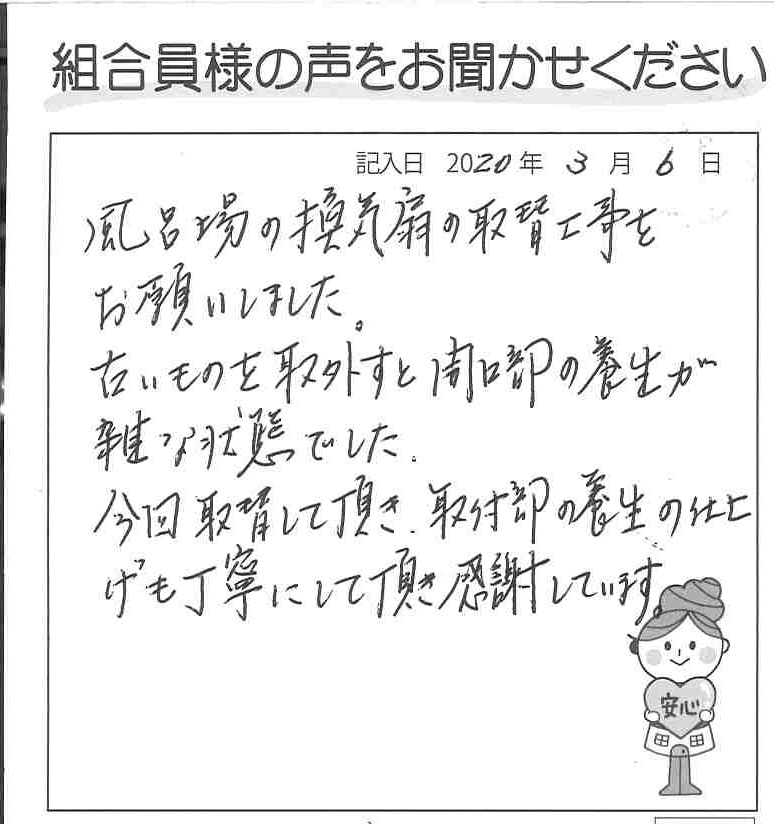 組合員様の声をお聞かせください
記入日 2020年 3月 6日
風呂場の換気扇の取替工事を
お願いしました。
古いものを取外すと開口部の養生が
雑な状態でした.
今回取替して頂き.取付部の養生の仕上
げも丁寧にして頂き感謝しています
安心